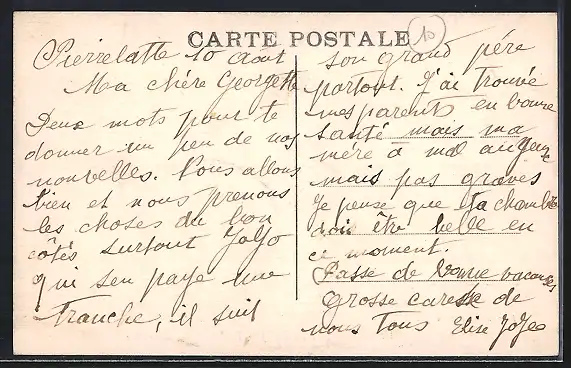 CARTE POSTALE
10
Pierrelatte 10 Aout
Ma chére Georgette
Deux mots pour te
donner un peu de nos
nouvelles. Nous allons
bien et nous prenons
les choses du bon
côtés surtout JoJo
qui sen paye une
tranche, il suit
son grand pére
partout. J'ai trouvé
mes parents en bonne
santé mais ma
mére a mal au genou
mais pas graves
Je pense que ta chambre
dois être belle en
ce moment.
Passe de bonne vacances
Grosse caresse de
nous tous Elise JoJo